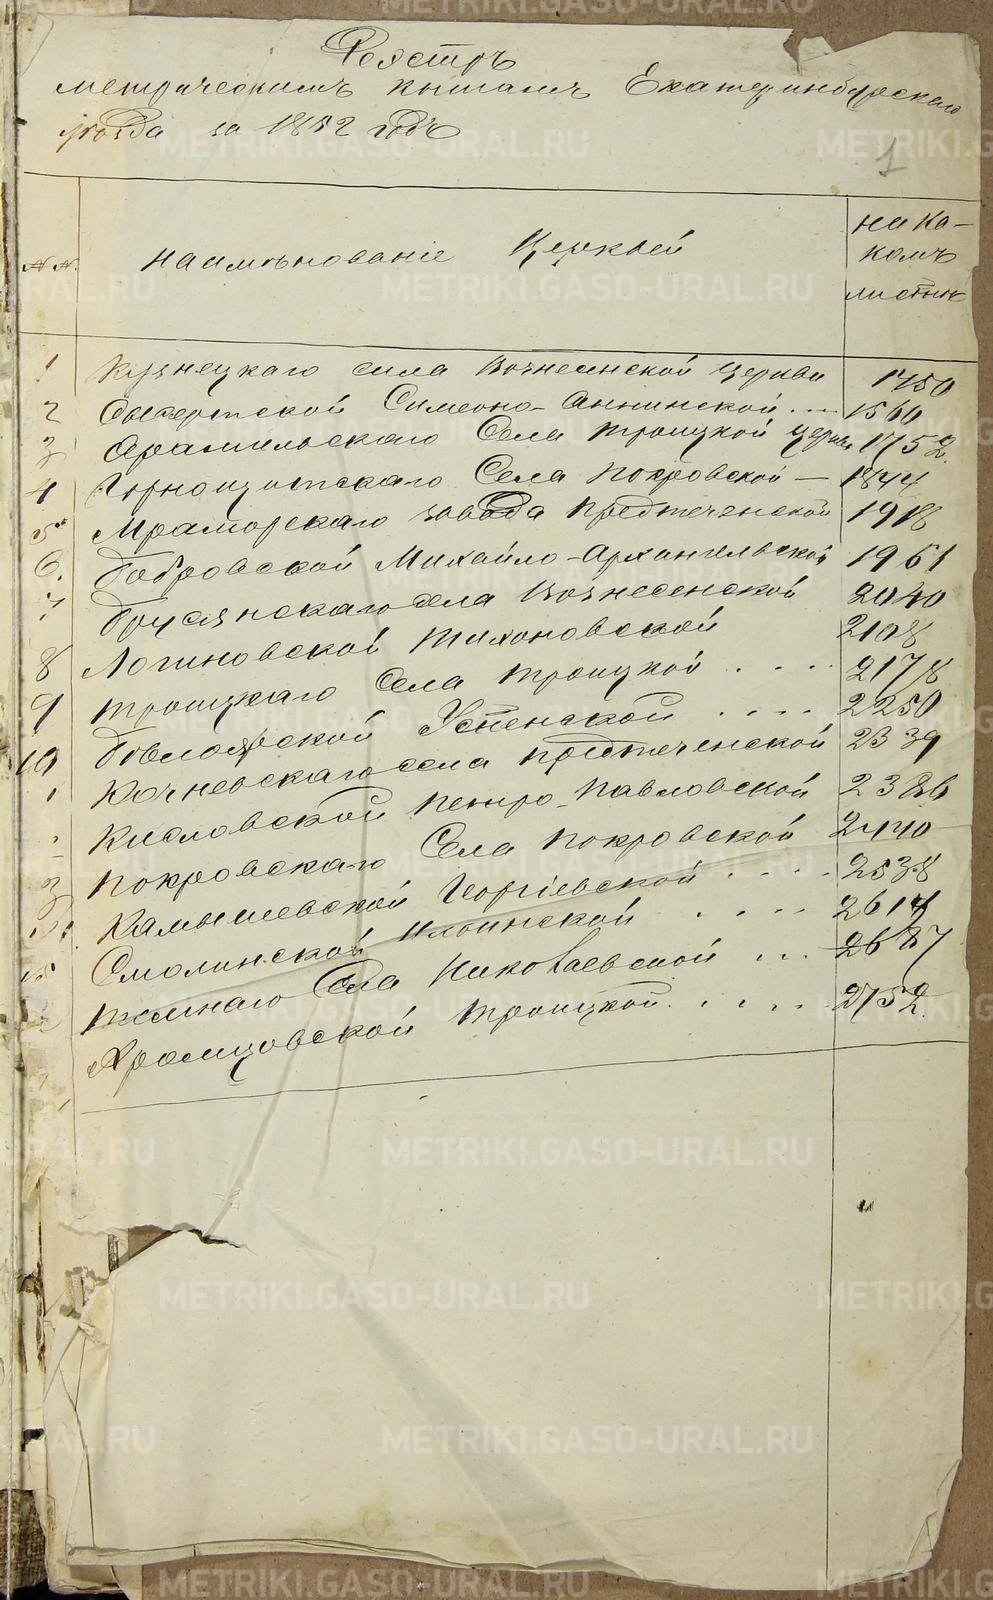 Реэстръ
метрическимъ книгамъ Екатеринбургскаго
уѣзда за 1852 годъ
1
№№. Наимѣнованіе Церквей На ка-
комъ
листѣ
1 Кузнецкаго села Вознесенской церкви 1450
2 Сысертской Симеоно-Аннинской... 1560
3 Арамильскаго Села Троицкой церкви 1752
4 Горнощитскаго Села Покровской — 1844
5 Мраморскаго завода Предтеченской 1918
6. Бобровской Михайло-Архангельской 1961
7 Брусянскаго села Вознесенской 2040
8 Логиновской Тихоновской 2108
9 Троицкаго Села Троицкой .... 2178
10 Бѣлоярской Успенской .... 2250
1 Кочневскаго села Предтеченской 2339
Кисловской Петро-Павловской 2386
3 Покровскаго Села Покровской 2440
Камышевской Георгіевской .... 2538
15 Смолинской Ильинской .... 2614
Темнаго Села Николаевской ... 2687
Хромцовской Троицкой .... 2752
METRIKI.GASO-URAL.RU